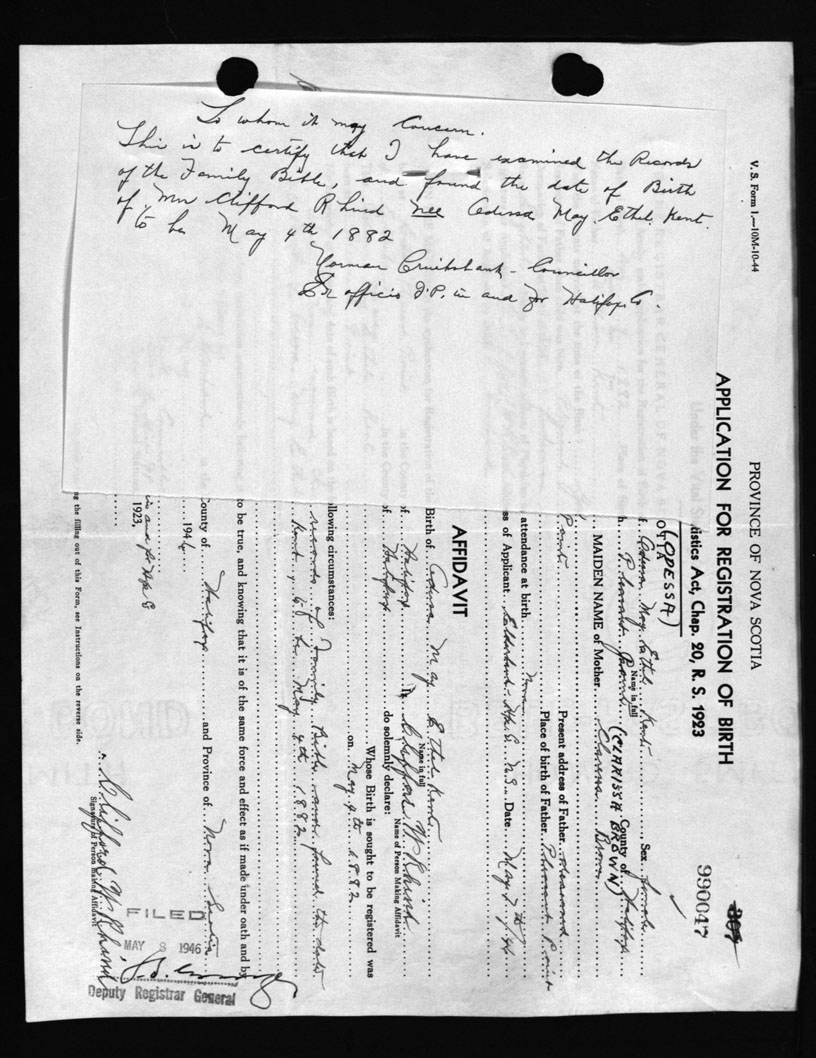 To whom it may Concern.
This is to certify that I have examined the Records
of the Family Bible, and found the date of Birth
of Mrs Clifford Rhind nee Adessa May Ethel Kent.
to be May 4th 1882
Norman Cruikshank - Councillor
Ex officio J.P. in and for Halifax Co.
V. S. Form 1.—10M-10-44
PROVINCE OF NOVA SCOTIA
APPLICATION FOR REGISTRATION OF BIRTH
istics Act, Chap. 20, R. S. 1923
807
990047
(ODESSA)
May Ethel Kent Sex female
Name in full
Pleasant Point County of Halifax
(CLARISSA BROWN)
MAIDEN NAME of Mother Brown
Present address of Father
Point Place of birth of Father Pleasant Point
attendance at birth None
ss of Applicant N.S. Date May 7th
AFFIDAVIT
Birth of May Ethel Kent
Name in full
I, Clifford W Rhind
Name of Person Making Affidavit
of Halifax
of Halifax do solemnly declare:
Whose Birth is sought to be registered was
on May 4th 1882
llowing circumstances:
records of Family Bible and found the date
to be May 4th 1882
to be true, and knowing that it is of the same force and effect as if made under oath and by
County of Halifax and Province of Nova Scotia
1946
in and for Hfx Co
1923,
Clifford W. Rhind
Signature of Person Making Affidavit
g the filling out of this Form, see Instructions on the reverse side.
FILED
MAY 8 1946
Deputy Registrar General